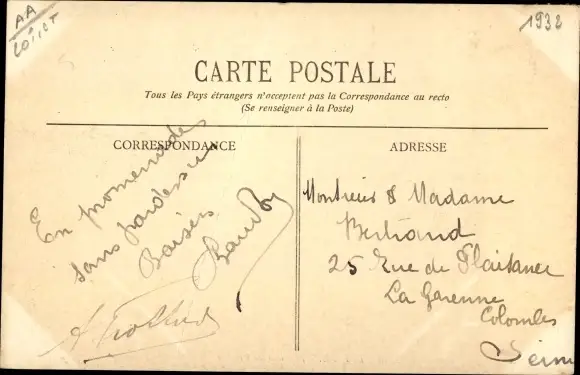 AA
Loiret
1932
CARTE POSTALE
Tous les Pays étrangers n'acceptent pas la Correspondance au recto
(Se renseigner à la Poste)
CORRESPONDANCE
En promenades
sans pardessus
Baisers
ADRESSE
Monsieur & Madame
Bertrand
25 Rue de Plaisance
La Garenne
Colombes
Seine